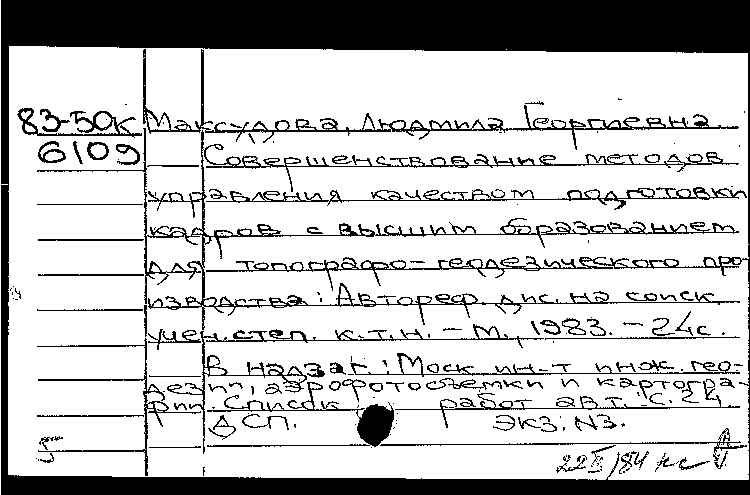 83-50к Максудова, Людмила Георгиевна.
6109 Совершенствование методов
управления качеством подготовки
кадров с высшим образованием
для топографо-геодезического про-
изводства: Автореф. дис. на соиск.
учен. степ. к.т.н. - М., 1983. - 24с.
В надзаг.: Моск. ин-т инж. гео-
дезии, аэрофотосъемки и картогра-
фии. Список работ авт.: с. 24
ДСП. Экз: N3.
5